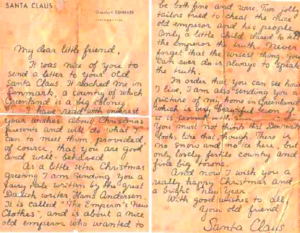 SANTA CLAUS
My dear little friend,
It was nice of you to
send a letter to your old
Santa. It reached me in
Denmark, a country of which
Greenland is a big colony.
your wishes about Christmas
and will do what I
can to meet them provided,
of course, that you are good
and well-behaved.
As a little Christmas
greeting I am sending you a
fairy tale written by the great
Danish writer Hans Andersen.
It is called "The Emperor's New
Clothes", and is about a nice
old emperor who wanted to
be both fine and Two
tailors tried to cheat the nice
old emperor and his people.
Only a little child dared to tell
the emperor the truth. Never
forget that the thing you
can ever do is always to speak
the truth.
In order that you can see how
I live, I am also sending you a
picture of my home in Greenland,
which is a very beautiful
is covered with
You must not think that Denmark
looks like that, though. There is
no snow and no ice here, but
only lovely fertile country and
fine big towns.
And now I wish you a
really happy Christmas and
a New Year.
With good wishes to all,
Your old friend,
Santa Claus